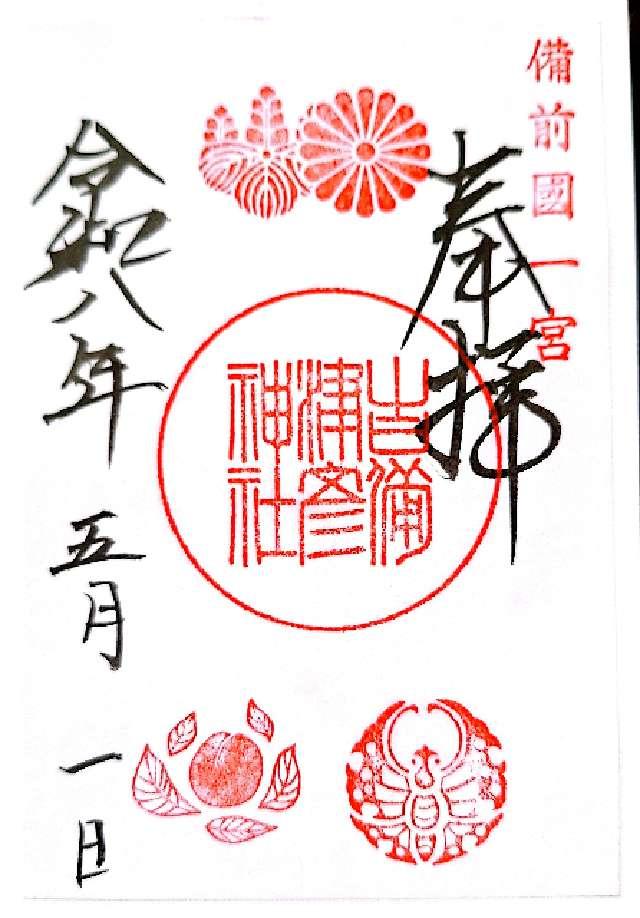 備前國一宮
奉拝
吉備
津彦
神社
令和八年 五月 一日